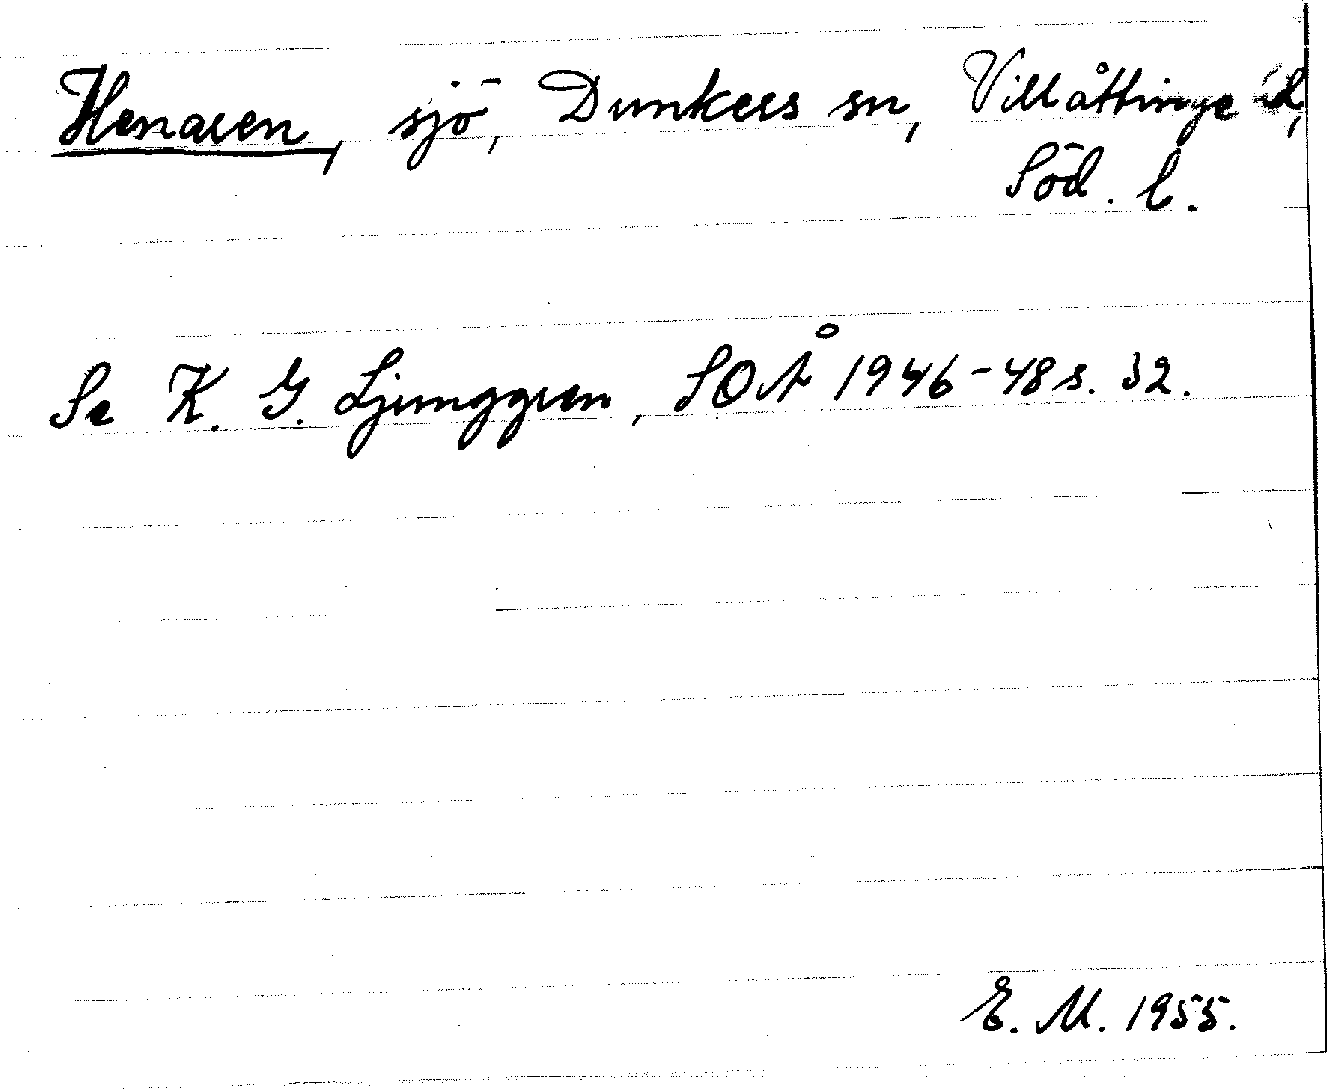 Henaren, sjö, Dunkers sn, Villåttinge hd,
Söd. l.
Se K. G. Ljunggren, SOÅ 1946-48 s. 32.
E. M. 1955.